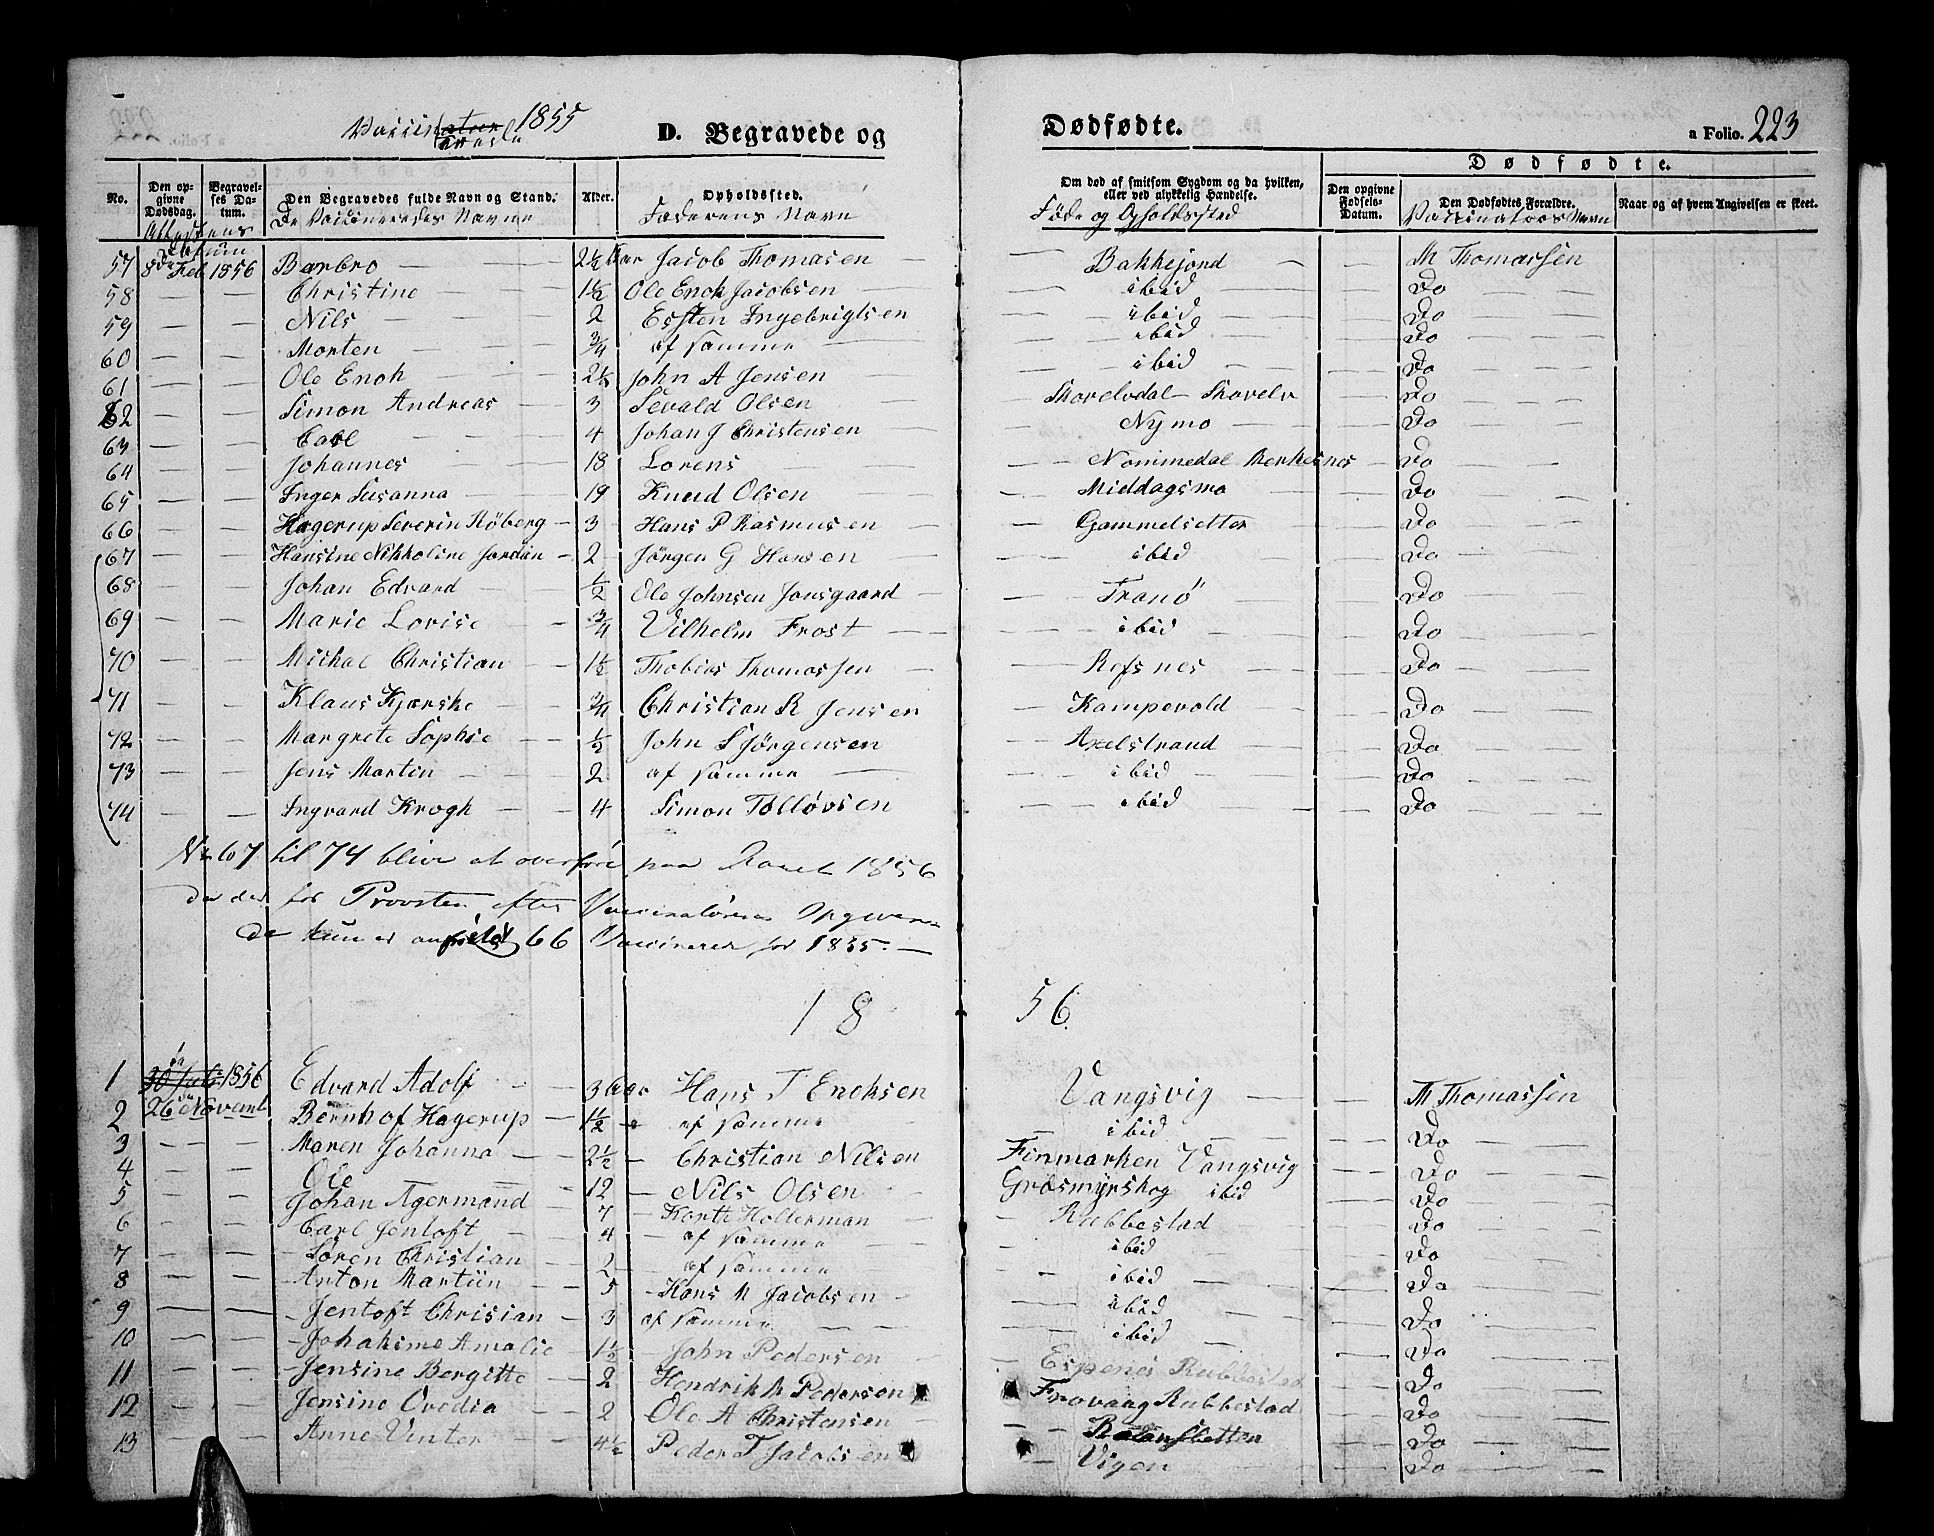 1855
D. Begravede og Dødfødte. a Folio. 223
Dødfødte.
No. Den opgivne Dødsdag. Begravelses Datum. Den Begravedes fulde Navn og Stand. Alder. Opholdssted. Om død af smitsom Sygdom og da hvilken, eller ved ulykkelig Hændelse. Den opgivne Fødsels-Datum. Den Dødfødtes Forældre. Naar og af hvem Angivelsen er skeet.
Attestens Datum De Vaccineredes Navne Faderens Navn Føde og Opholdssted Vaccinatørs Navn
57 8de Feb 1856 Barbro 2½ Aar Jacob Thomasen Bakkejord M Thomassen
58 — — Christine 1½ Ole Enok Jacobsen — ibid — Do
59 — — Nils 2 Essten Ingebrigtsen — ibid — Do
60 — — Morten ¾ af samme — ibid — Do
61 — — Ole Enok 2½ John A Jensen — ibid — Do
62 — — Simon Andreas 3 Sevald Olsen Skovelvdal Skovelv Do
63 — — Carl 4 Johan J Christensen — Nymo — Do
64 — — Johannes 18 Lorens — Nommedal Do
65 — — Inger Susanna 19 Knud Olsen — Middagsmo — Do
66 — — Hagerup Severin Röberg 3 Hans P Rasmusen — Gammelsetter Do
67 — — Hansine Nikkoline Jordan 2 Jørgen G Hansen — ibid — Do
68 — — Johan Edvard ½ Ole Johnsen Jonsgaard — Tranö — Do
69 — — Marie Lovise ¾ Vilhelm Frost — ibid — Do
70 — — Michal Christian 1½ Thobias Thomassen — Refsnes — Do
71 — — Klaus Kjerske ¾ Christian R Jensen — Kampevold — Do
72 — — Margrete Sophie ½ John S Jörgensen — Axelstrand — Do
73 — — Jens Martin 2 af samme — ibid — Do
74 — — Ingvard Krogh 4 Simon Tolløvsen — ibid — Do
No 67 til 74 blive at overføre paa Aaret 1856
da der for Provsten efter Vaccinatørens Opgivende
de kun er anført 66 Vaccinerede for 1855. —
1856.
1 1856 Edvard Adolf 3 Aar Hans T Enoksen Vangsvig — M Thomassen
2 26 Novemb Bernhof Hagerup 1½ af samme — ibid Do
3 — — Maren Johanna 2½ Christian Nilsen Finmarken Vangsvig Do
4 — — Ole 12 Nils Olsen Græsmyrskog ibid Do
5 — — Johan Agermand 7 Holterman — Rubbestad Do
6 — — Carl Jentoft 4 af samme — ibid Do
7 — — Sören Christian 2 af samme — ibid — Do
8 — — Anton Martiin 5 Hans M Jacobsen — ibid — Do
9 — — Jentoft Chrisian 3 af samme — ibid — Do
10 — — Johakime Amalie 1½ John Pedersen Espenes Rubbestad Do
11 — — Jensine Bergitte 2 Hendrik M Pedersen Frovaag Rubbestad Do
12 — — Jensine Ovedia 2 Ole A Christensen — Do
13 — — Anne Vinter 4½ Peder T Jacobsen — Vigen — Do